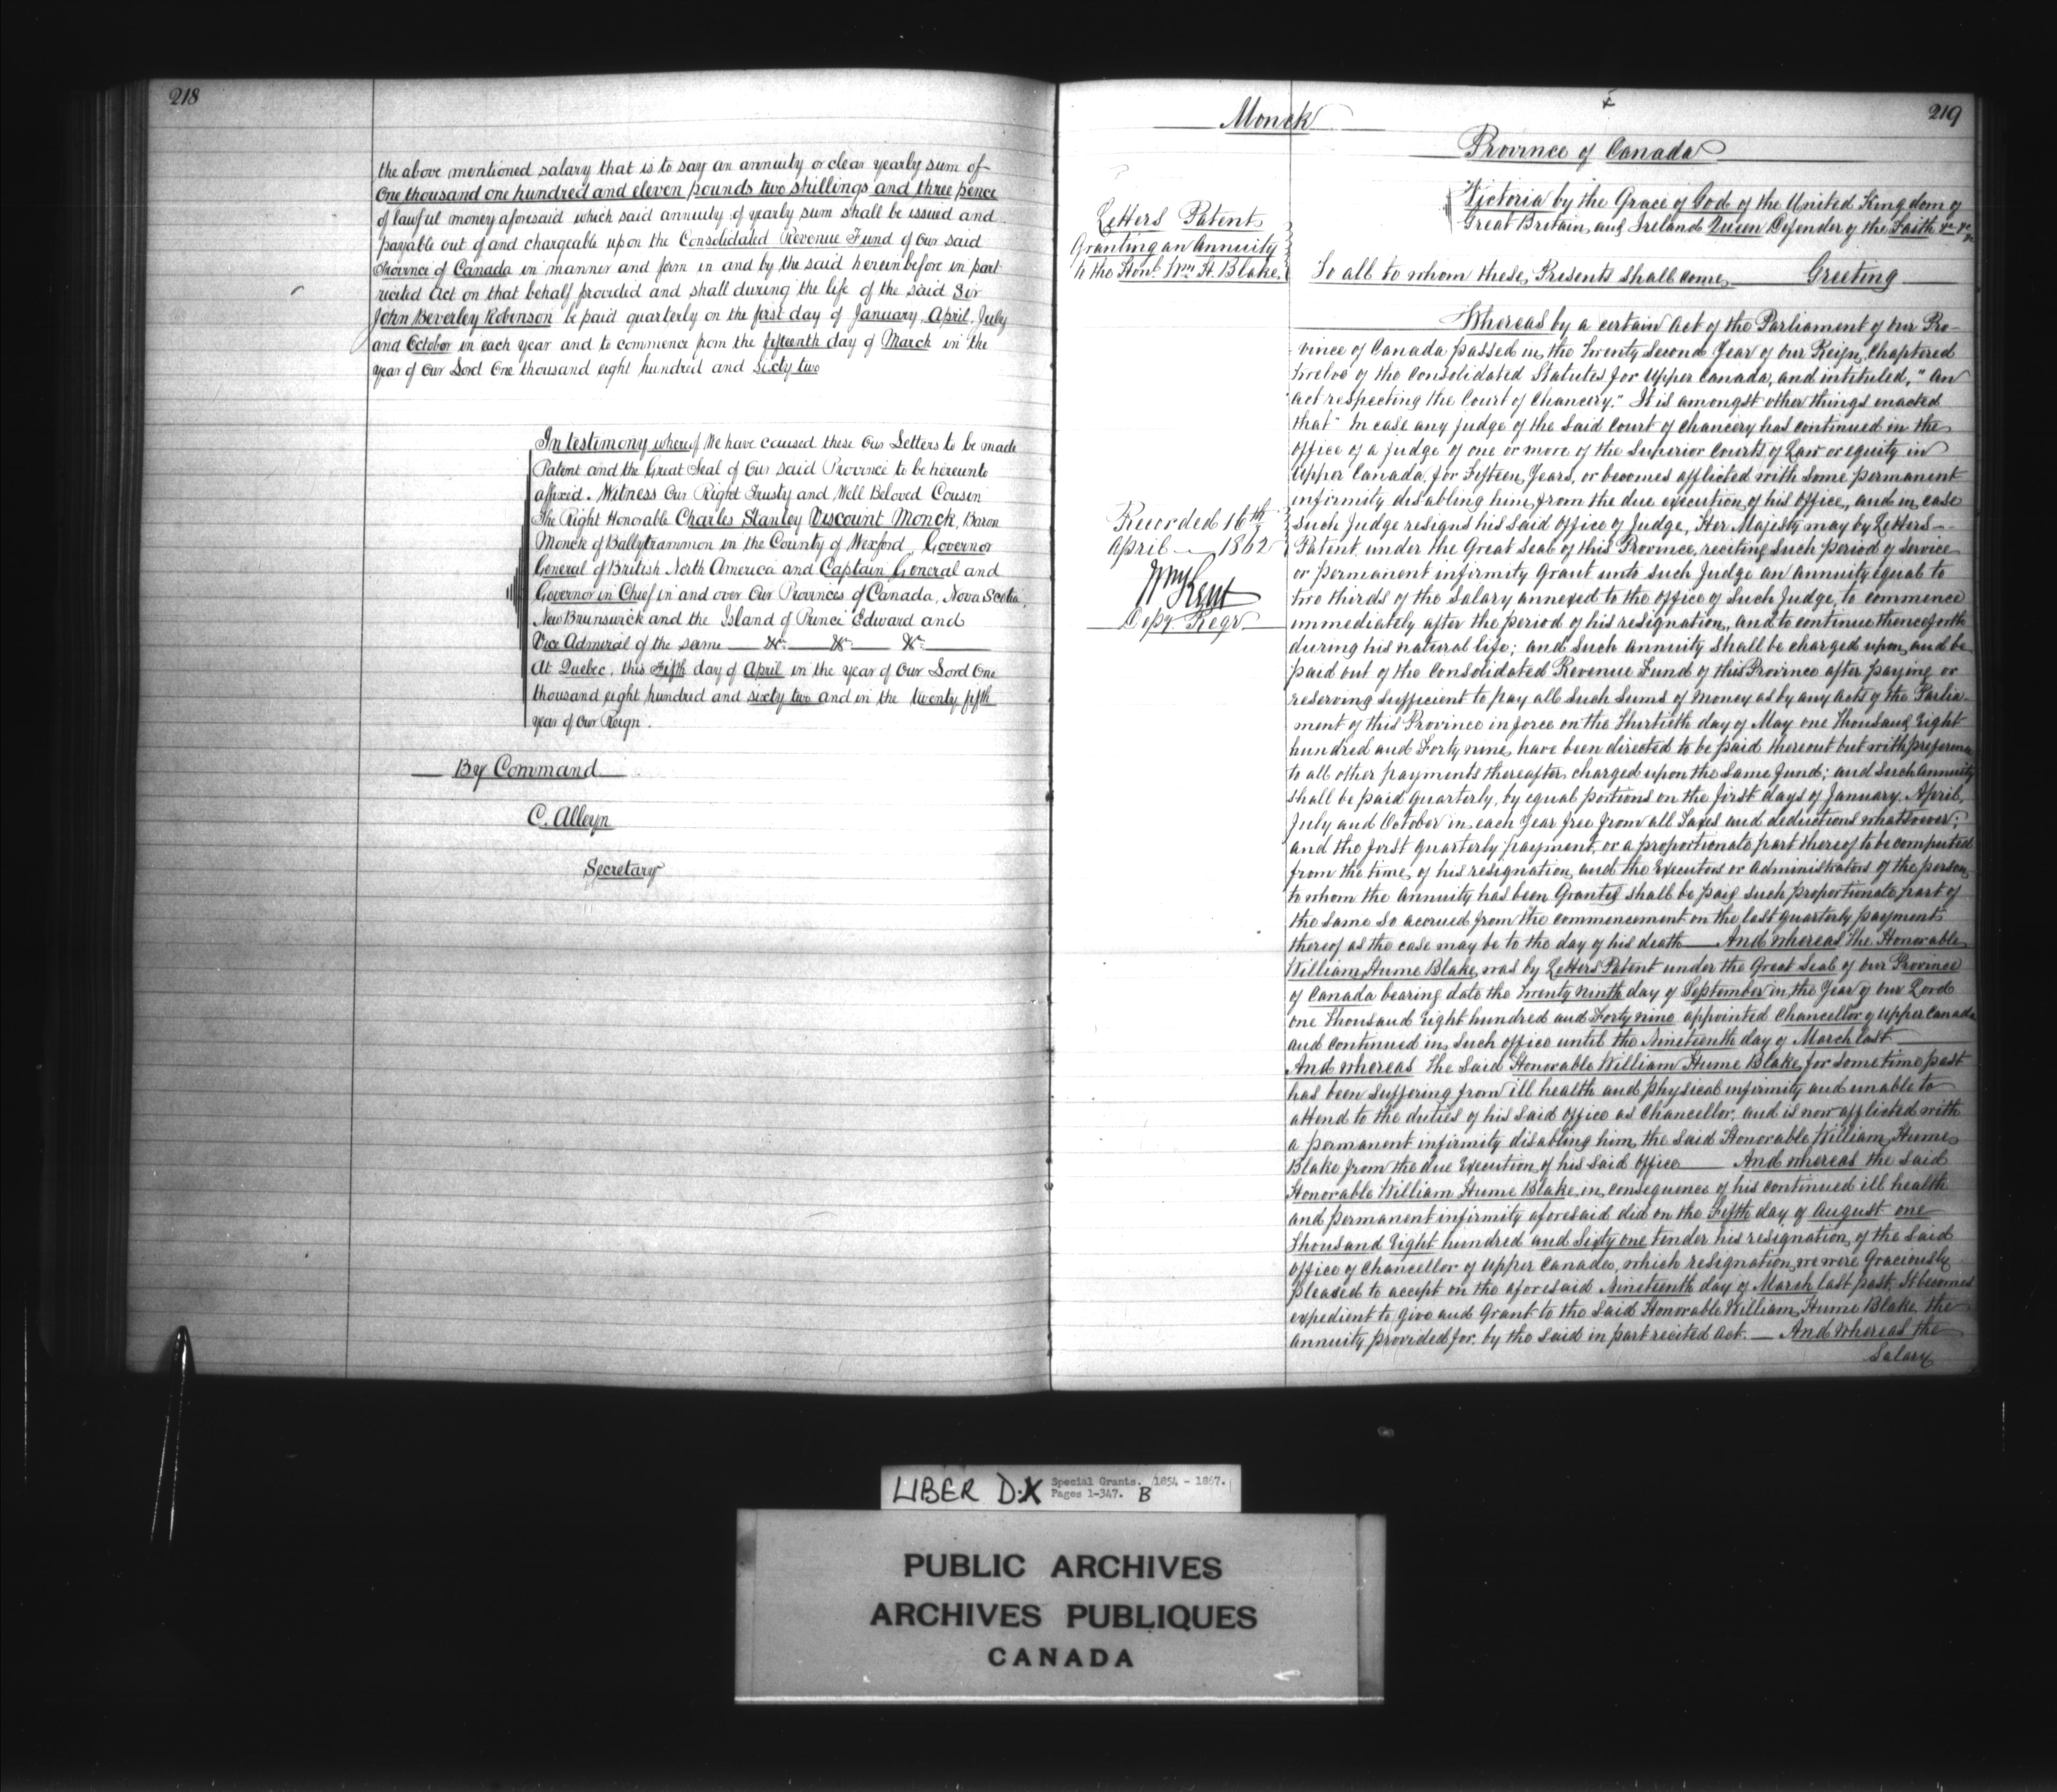 218
the above mentioned salary that is to say an annuity or clear yearly sum of
One thousand one hundred and eleven pounds two shillings and three pence
of lawful money aforesaid which said annuity of yearly sum shall be issued and
payable out of and chargeable upon the Consolidated Revenue Fund of Our said
Province of Canada in manner and form in and by the said herein before in part
recited Act on that behalf provided and shall during the life of the said Sir
John Beverley Robinson be paid quarterly on the first day of January, April, July
and October in each year and to commence from the fifteenth day of March in the
year of Our Lord One thousand eight hundred and sixty two
In testimony whereof We have caused these Our Letters to be made
Patent and the Great Seal of Our said Province to be hereunto
affixed. Witness Our Right Trusty and Well Beloved Cousin
The Right Honorable Charles Stanley Viscount Monck, Baron
Monck of Ballytrammon in the County of Wexford, Governor
General of British North America and Captain General and
Governor in Chief in and over Our Provinces of Canada, Nova Scotia,
New Brunswick and the Island of Prince Edward and
Vice Admiral of the same &c &c &c
At Quebec, this Fifth day of April in the year of Our Lord One
thousand eight hundred and sixty two and in the twenty fifth
year of Our Reign.
By Command
C. Alleyn
Secretary
219
Monck
Province of Canada
Letters Patent
Granting an Annuity
to the Honl. Wm. H. Blake
Recorded 16th
April 1862
Wm Kent
Depy. Regr.
Victoria by the Grace of God of the United Kingdom of
Great Britain and Ireland Queen Defender of the Faith &c &c &c
To all to whom these Presents shall come Greeting
Whereas by a certain Act of the Parliament of our Pro-
vince of Canada passed in the Twenty Second Year of our Reign, Chaptered
twelve of the Consolidated Statutes for Upper Canada, and intituled, "An
act respecting the Court of Chancery." It is amongst other things enacted
that "In case any judge of the said Court of Chancery has continued in the
office of a judge of one or more of the Superior Courts of Law or equity in
Upper Canada, for Fifteen Years, or becomes afflicted with some permanent
infirmity disabling him from the due execution of his Office, and in case
such Judge resigns his said office of Judge, Her Majesty may by Letters
Patent under the Great Seal of this Province, reciting such period of service
or permanent infirmity Grant unto such Judge an annuity equal to
two thirds of the salary annexed to the office of such Judge, to commence
immediately after the period of his resignation, and to continue thenceforth
during his natural life; and such Annuity shall be charged upon, and be
paid out of the Consolidated Revenue Fund of this Province after paying or
reserving sufficient to pay all such sums of Money as by any Acts of the Parlia-
ment of this Province in force on the Thirtieth day of May one Thousand Eight
hundred and Forty nine, have been directed to be paid thereout but with preference
to all other payments thereafter charged upon the same Fund; and such annuity
shall be paid quarterly, by equal portions on the first days of January, April,
July and October in each Year free from all Taxes and deductions whatsoever;
and the first quarterly payment, or a proportionate part thereof to be computed
from the time of his resignation, and the Executors or Administrators of the person
to whom the annuity has been Granted shall be paid such proportionate part of
the same so accrued from the commencement on the last quarterly payment
thereof as the case may be to the day of his death And whereas The Honorable
William Hume Blake was by Letters Patent under the Great Seal of our Province
of Canada bearing date the Twenty Ninth day of September in the Year of our Lord
one Thousand Eight hundred and Forty nine appointed Chancellor of Upper Canada
and continued in such office until the Nineteenth day of March last
And whereas The Said Honorable William Hume Blake, for some time past
has been suffering from ill health and physical infirmity and unable to
attend to the duties of his said office as Chancellor, and is now afflicted with
a permanent infirmity disabling him, the said Honorable William Hume
Blake from the due Execution of his said office And whereas the said
Honorable William Hume Blake in consequence of his continued ill health
and permanent infirmity aforesaid did on the Fifth day of August one
Thousand Eight hundred and Sixty one tender his resignation, of the said
office of Chancellor of Upper Canada, which resignation we were Graciously
pleased to accept on the aforesaid Nineteenth day of March last past, It becomes
expedient to Give and Grant to the said Honorable William Hume Blake the
annuity provided for by the said in part recited Act. And whereas the
Salary
LIBER D.X Special Grants. 1854 - 1867.
Pages 1-347. B
PUBLIC ARCHIVES
ARCHIVES PUBLIQUES
CANADA